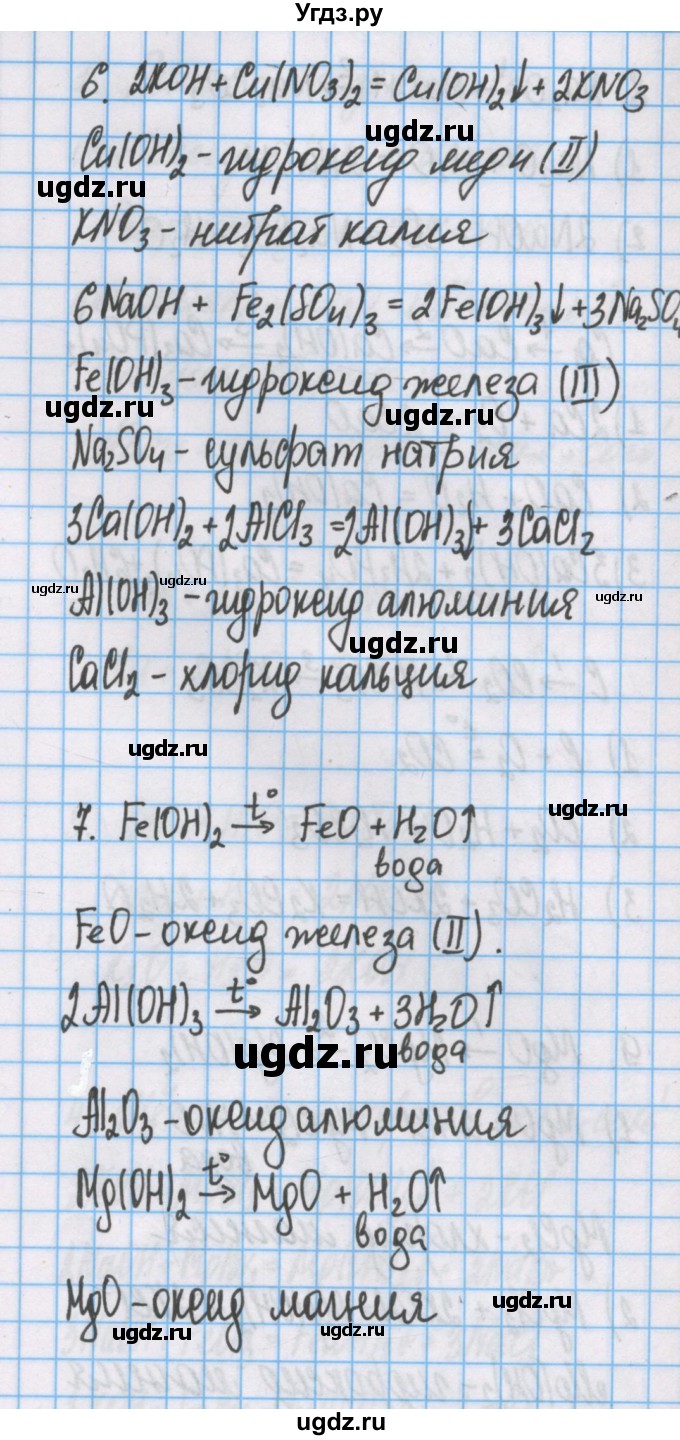 Угдз.ру
6. 2KOH + Cu(NO₃)₂ = Cu(OH)₂↓ + 2KNO₃
ugdz.ru
Cu(OH)₂ - гидроксид меди (II)
ugdz.ru
KNO₃ - нитрат калия
6NaOH + Fe₂(SO₄)₃ = 2Fe(OH)₃↓ + 3Na₂SO₄
Fe(OH)₃ - гидроксид железа (III)
ugdz.ru ugdz.ru
Na₂SO₄ - сульфат натрия
3Ca(OH)₂ + 2AlCl₃ = 2Al(OH)₃↓ + 3CaCl₂
ugdz.ru ugdz.ru ugdz.ru
Al(OH)₃ - гидроксид алюминия
ugdz.ru
CaCl₂ - хлорид кальция
ugdz.ru
7. Fe(OH)₂ →t° FeO + H₂O↑
ugdz.ru
вода
FeO - оксид железа (II).
2Al(OH)₃ →t° Al₂O₃ + 3H₂O↑
ugdz.ru
вода
Al₂O₃ - оксид алюминия
Mg(OH)₂ →t° MgO + H₂O↑
вода
MgO - оксид магния
ugdz.ru ugdz.ru ugdz.ru
ugdz.ru